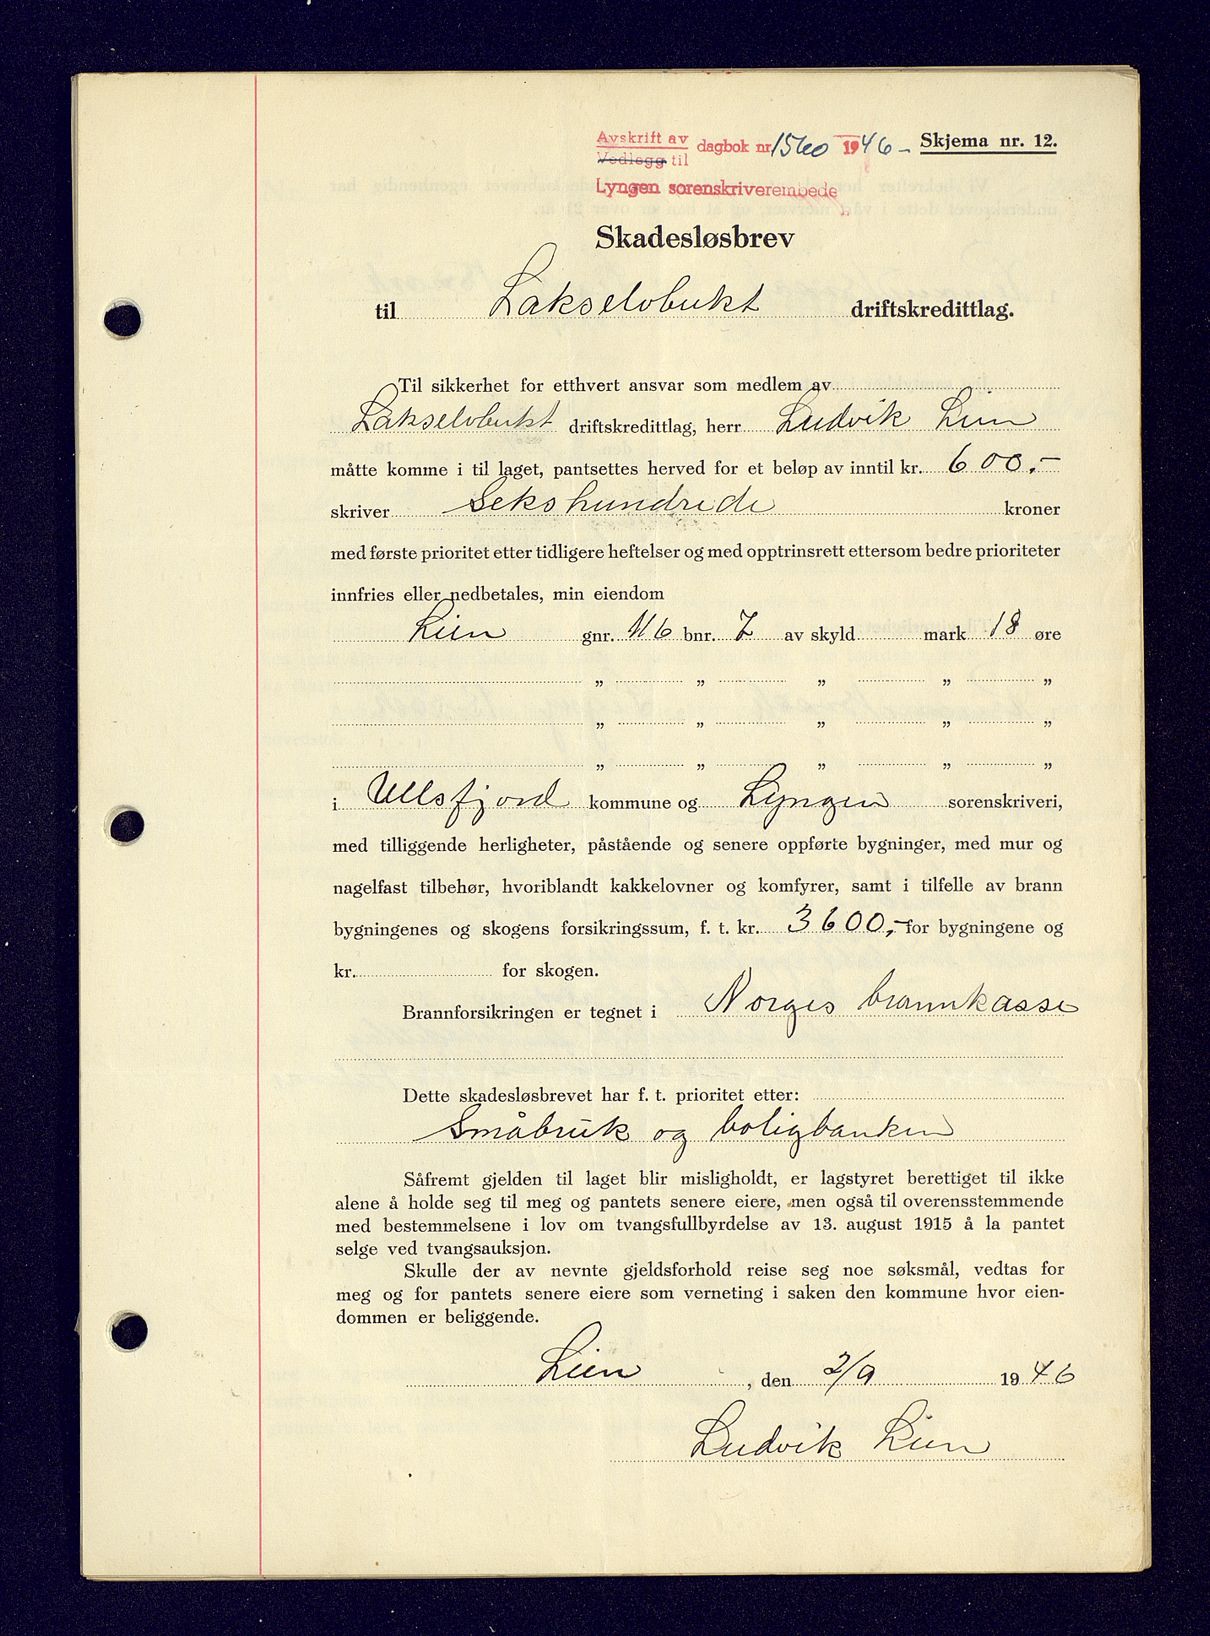 Avskrift av
Vedlegg til dagbok nr 1560 1946- Skjema nr. 12.
Lyngen sorenskriverembede
Skadesløsbrev
til Lakselvbukt driftskredittlag.
Til sikkerhet for etthvert ansvar som medlem av
Lakselvbukt driftskredittlag, herr Ludvik Lien
måtte komme i til laget, pantsettes herved for et beløp av inntil kr. 600.-
skriver Sekshundrede kroner
med første prioritet etter tidligere heftelser og med opptrinsrett ettersom bedre prioriteter
innfries eller nedbetales, min eiendom
Lien gnr. 116 bnr. 7 av skyld mark 18 øre
„ „ „ „ „
„ „ „ „ „
„ „ „ „ „
i Ullsfjord kommune og Lyngen sorenskriveri,
med tilliggende herligheter, påstående og senere oppførte bygninger, med mur og
nagelfast tilbehør, hvoriblandt kakkelovner og komfyrer, samt i tilfelle av brann
bygningenes og skogens forsikringssum, f. t. kr. 3600,- for bygningene og
kr. for skogen.
Brannforsikringen er tegnet i Norges brannkasse
Dette skadesløsbrevet har f. t. prioritet etter:
Småbruk og boligbanken
Såfremt gjelden til laget blir misligholdt, er lagstyret berettiget til ikke
alene å holde seg til meg og pantets senere eiere, men også til overensstemmende
med bestemmelsene i lov om tvangsfullbyrdelse av 13. august 1915 å la pantet
selge ved tvangsauksjon.
Skulle der av nevnte gjeldsforhold reise seg noe søksmål, vedtas for
meg og for pantets senere eiere som verneting i saken den kommune hvor eien-
dommen er beliggende.
Lien, den 2/9 1946
Ludvik Lien